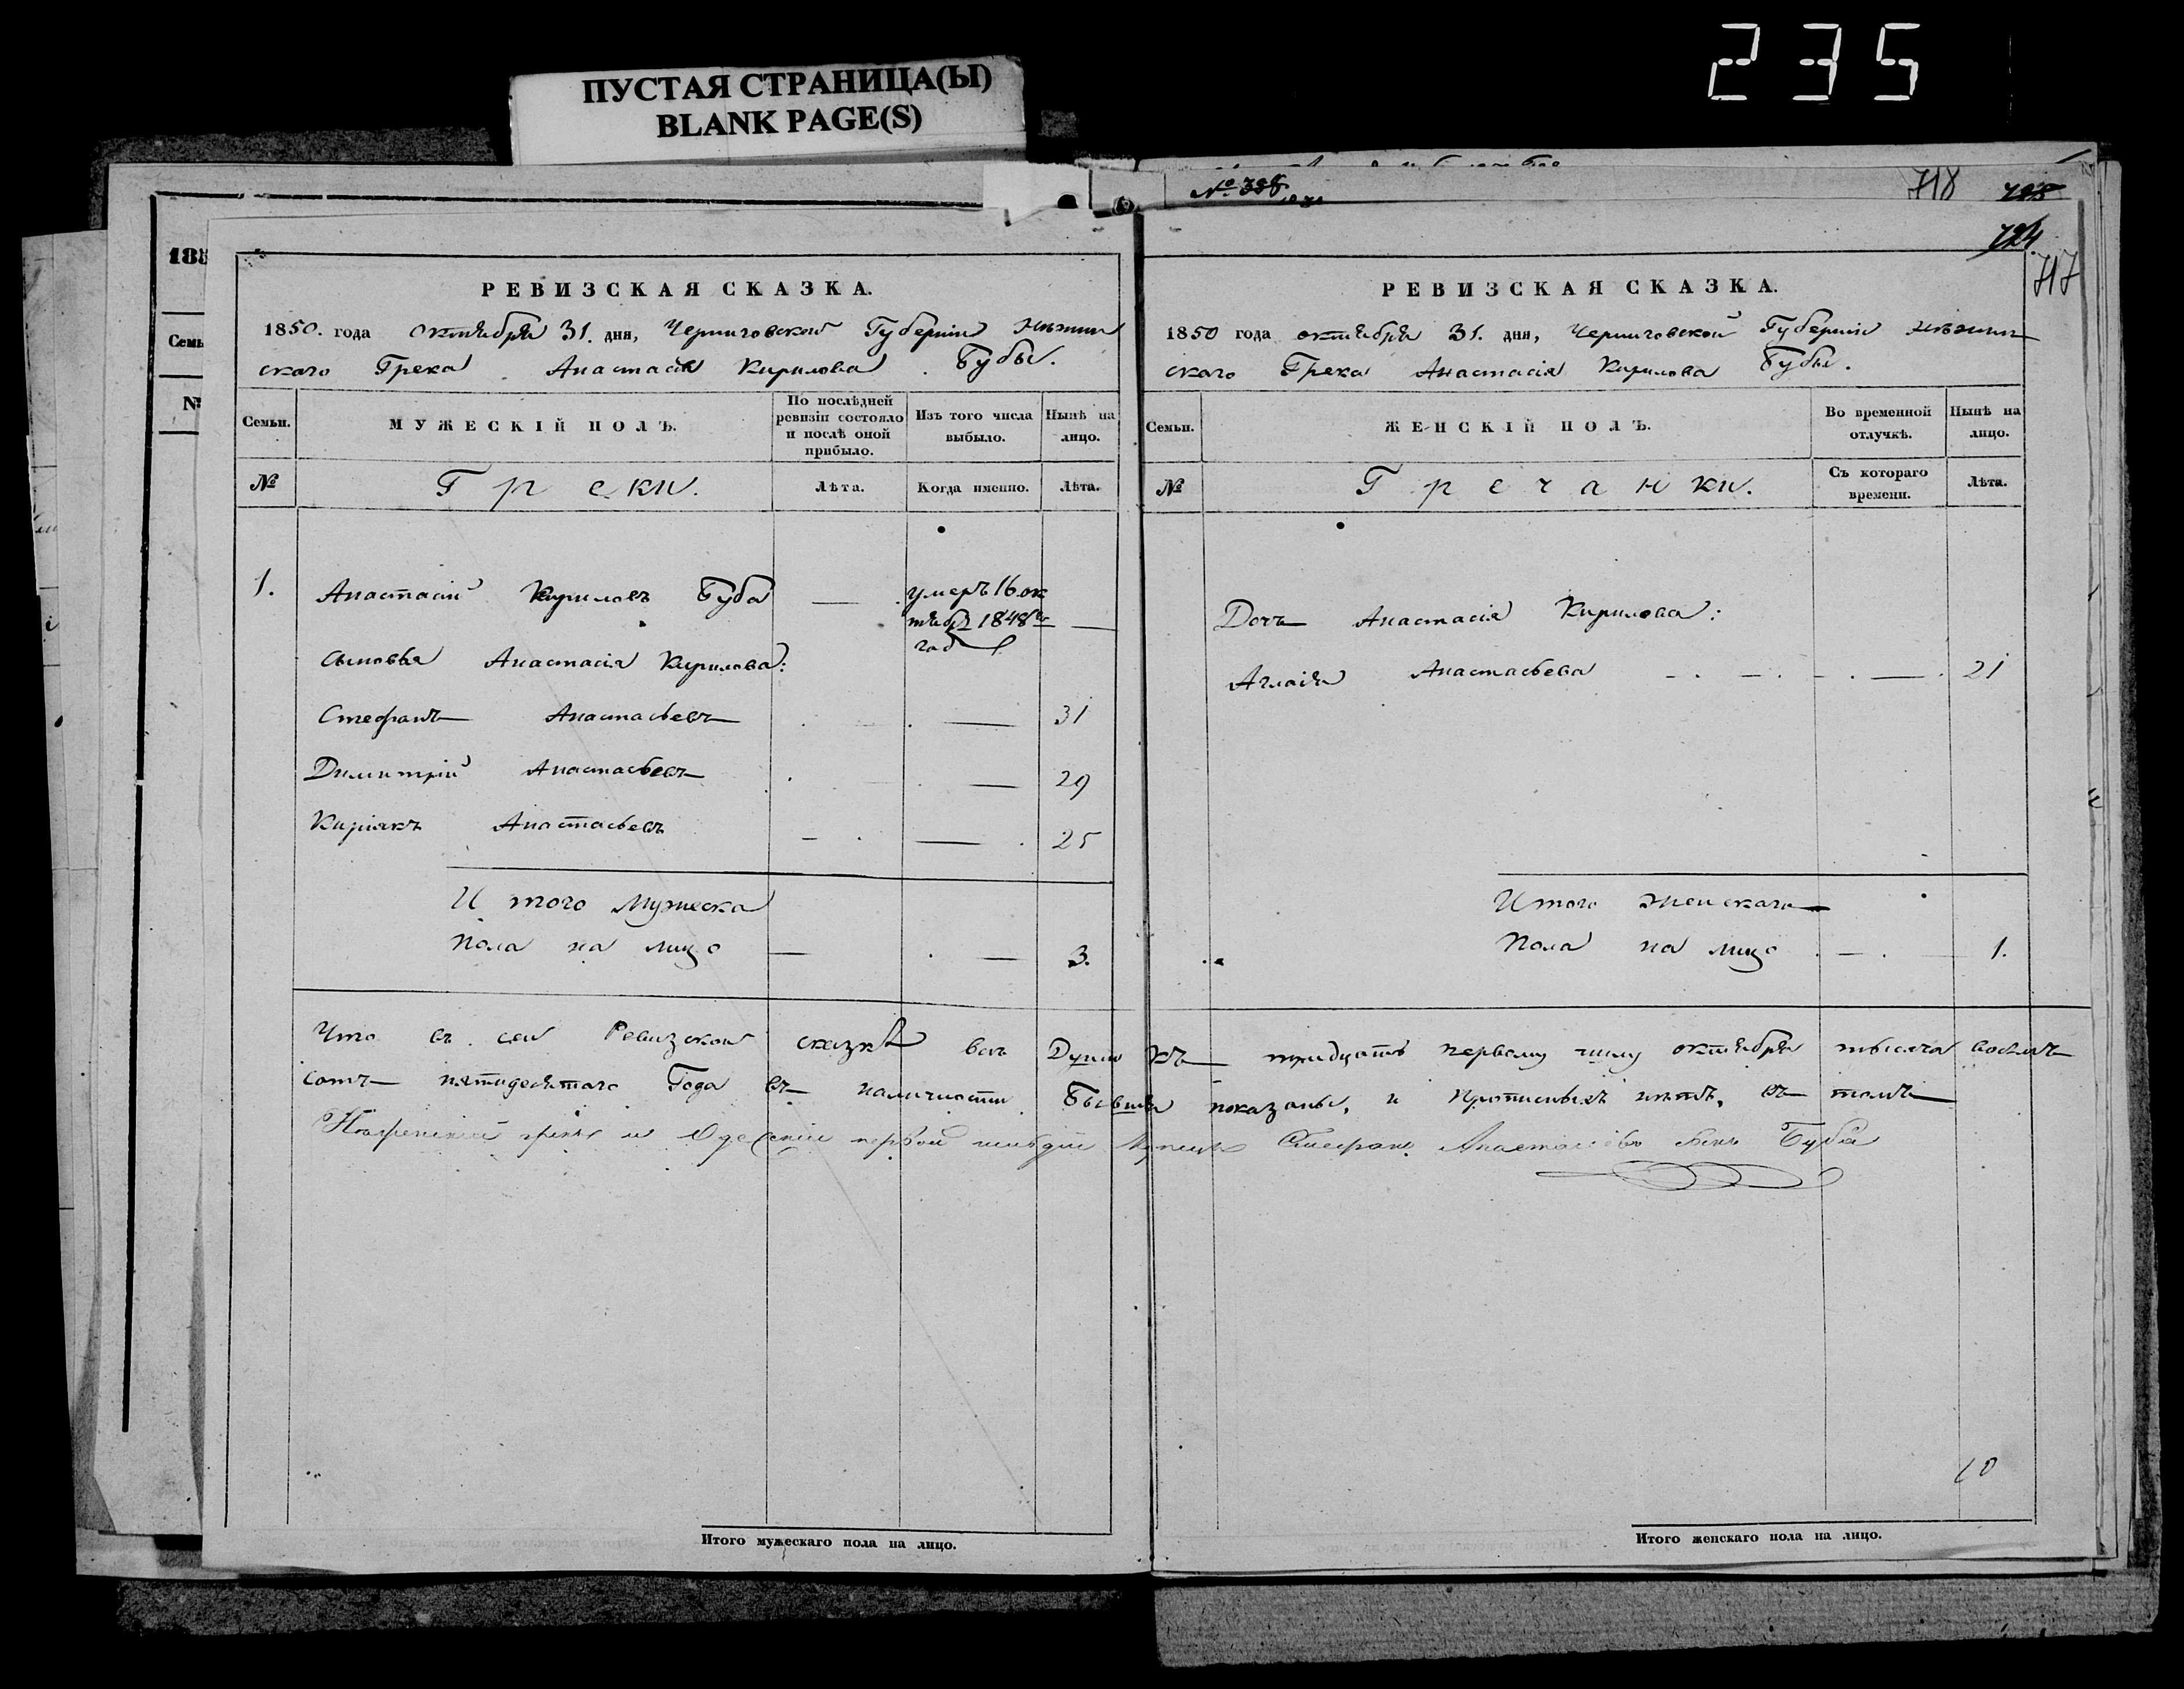 235
ПУСТАЯ СТРАНИЦА(Ы)
BLANK PAGE(S)
185
Семь
№
№ 398
718
717
РЕВИЗСКАЯ СКАЗКА.
1850. года октября 31. дня, Черниговской Губернии Нѣжин
скаго Грека Анастасія Кирилова Бубы.
Семьи.
МУЖЕСКІЙ ПОЛЪ.
По послѣдней ревизіи состояло и послѣ оной прибыло.
Изъ того числа выбыло.
Нынѣ на лицо.
№
Греки.
Лѣта.
Когда именно.
Лѣта.
1. Анастасій Кириловъ Буба — умеръ 16 ок
тября 1848го —
года
сыновья Анастасія Кирилова:
Стефанъ Анастасьевъ — 31
Димитрій Анастасьевъ — 29
Киріякъ Анастасьевъ — — 25
Итого Мужеска
пола на лицо — — 3.
РЕВИЗСКАЯ СКАЗКА.
1850 года октября 31. дня, Черниговской Губерніи Нѣжин
скаго Грека Анастасія Кирилова Бубы.
Семьи.
ЖЕНСКІЙ ПОЛЪ.
Во временной отлучкѣ.
Нынѣ на лицо.
№
Гречанки.
Съ котораго времени.
Лѣта.
Дочь Анастасія Кирилова:
Аглаія Анастасьева — — — — 21
Итого женскаго
пола на лицо — 1.
Что въ сей Ревизской сказкѣ всѣ Души къ тридцать первому числу октября тысяча восемь
сотъ пятидесятаго Года въ наличности бывшія показаны, и прописныхъ нѣтъ, въ томъ
Нѣжинскій грекъ и Одесскій первой гильдіи Купецъ Стефанъ Анастасіевъ сынъ Буба
10
Итого мужескаго пола на лицо.
Итого женскаго пола на лицо.